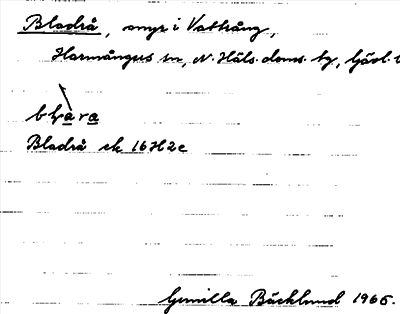 Bladrå, myr i Vattrång,
Harmångers sn, N. Häls. doms. tg, Gävl. l
Bladrå ek 16H2e
Gunilla Bäcklund 1966.